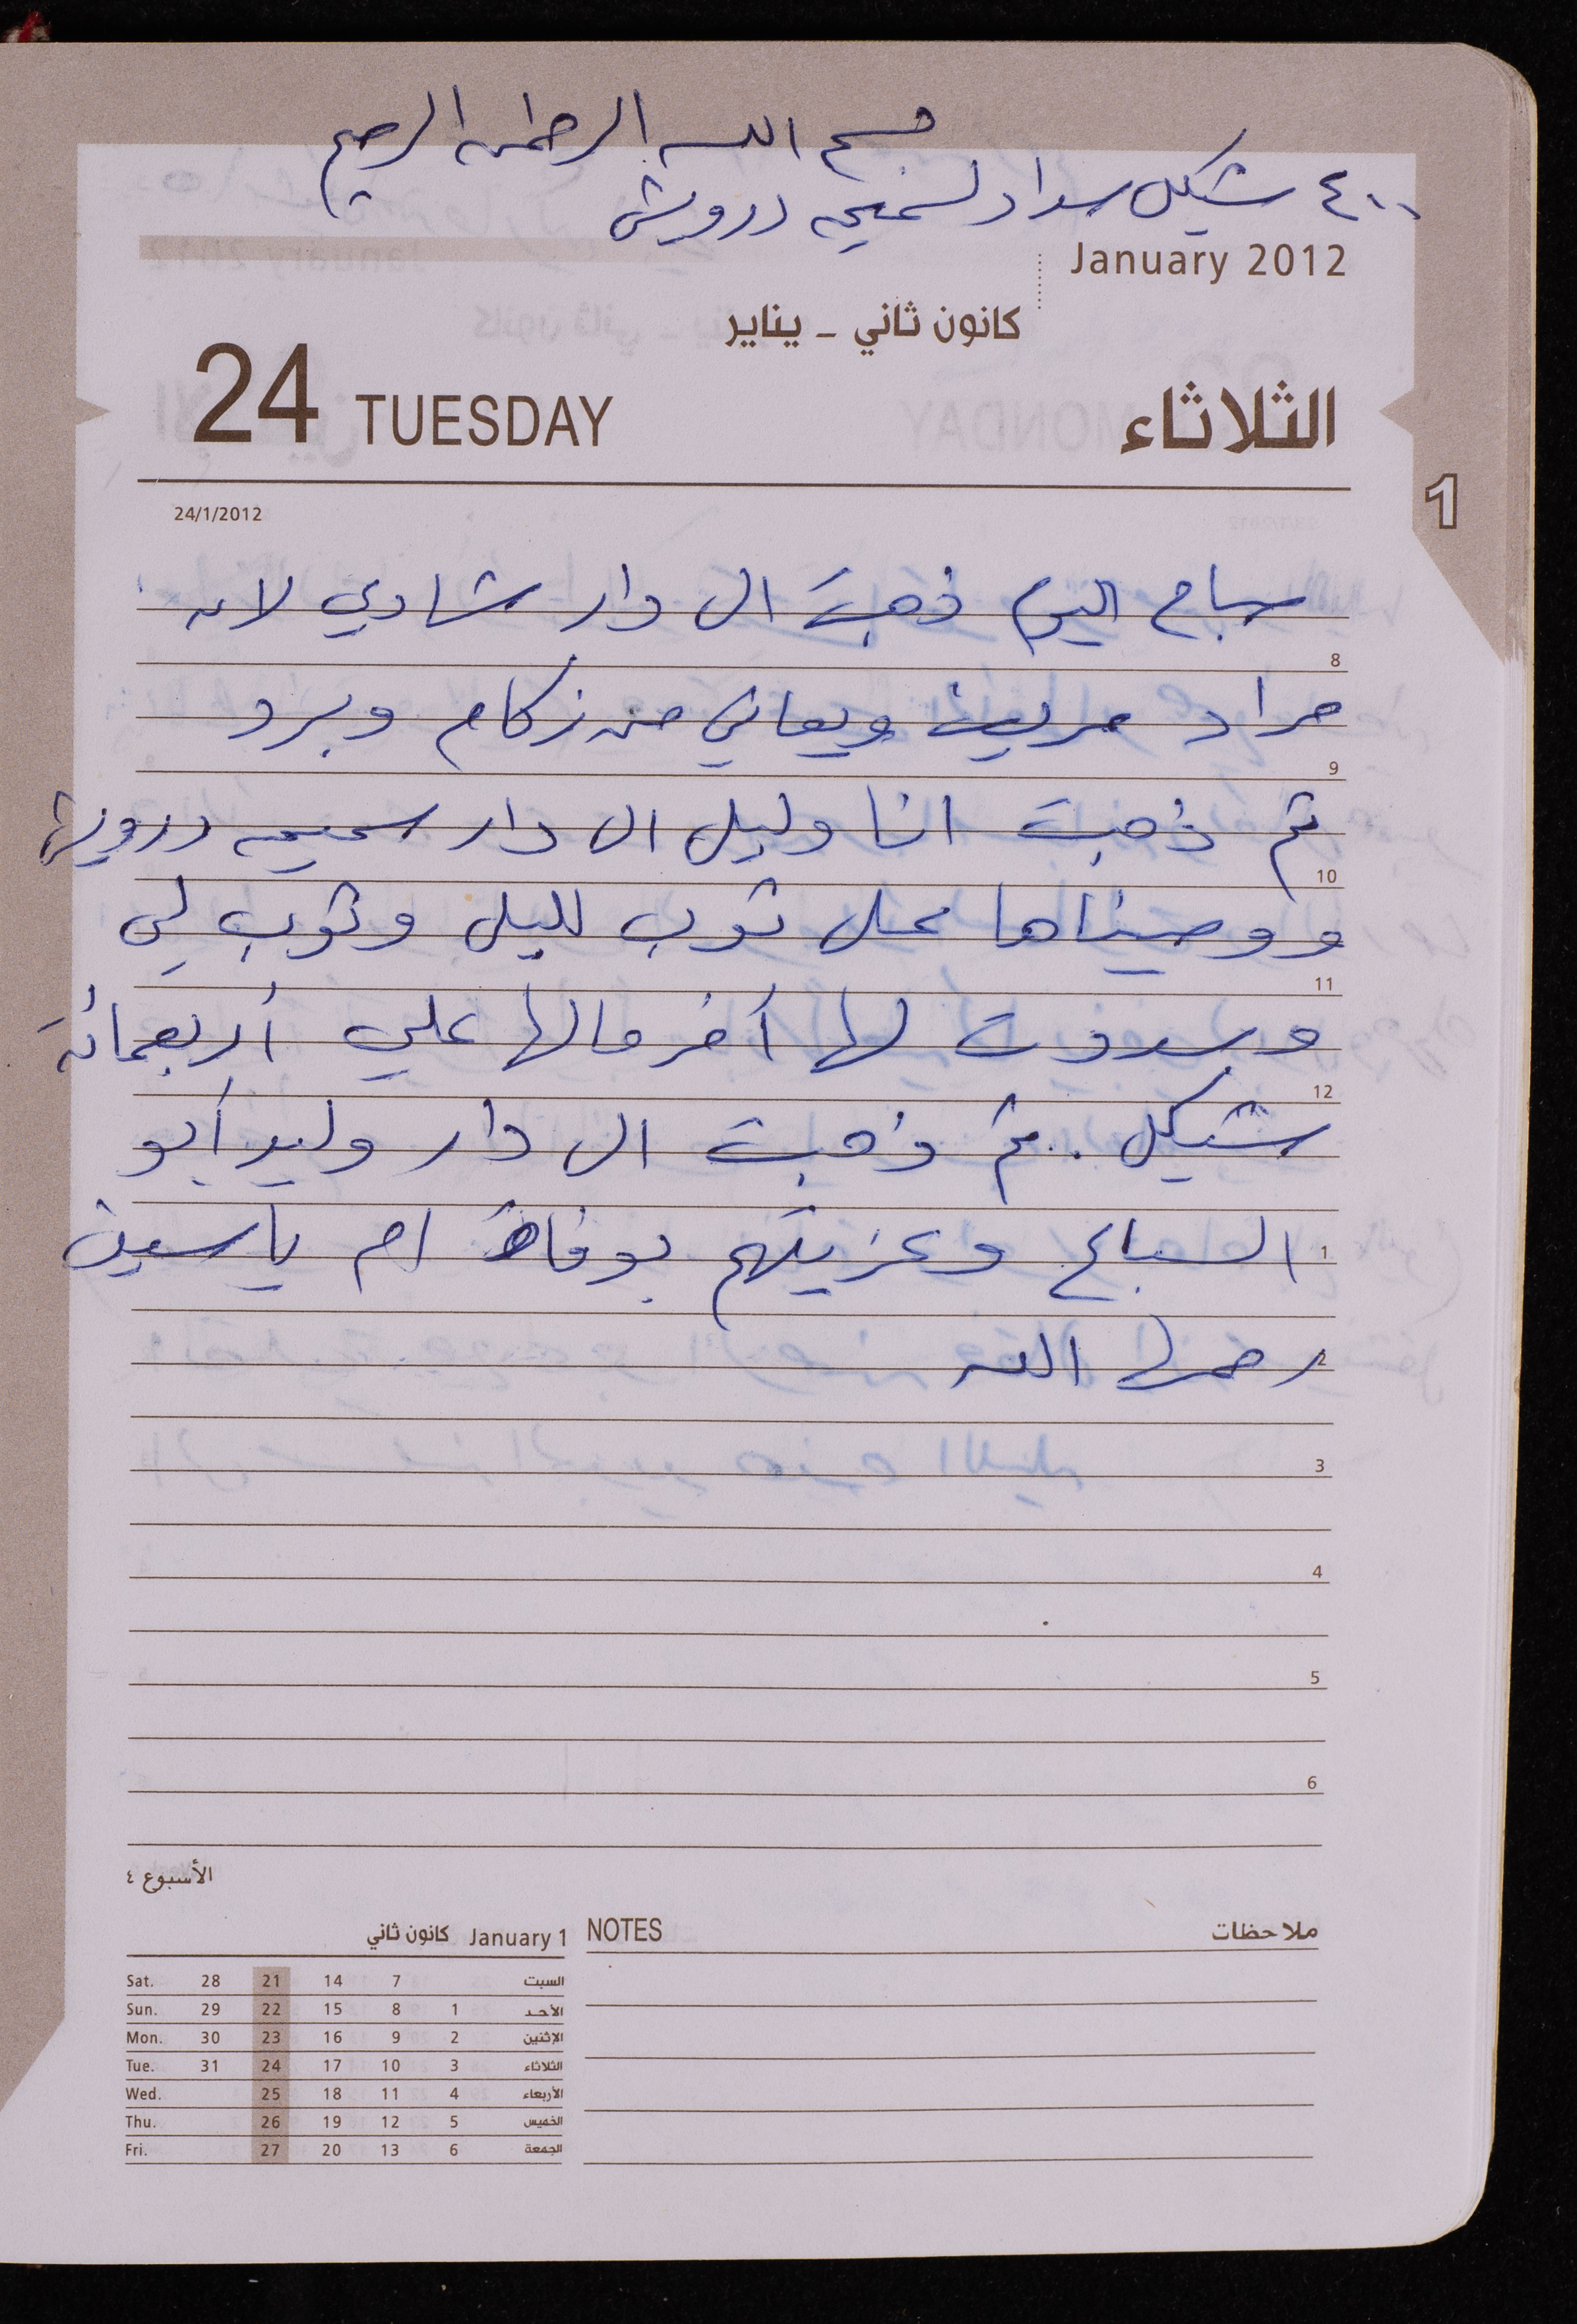 بسم الله الرحمن الرحيم
٤٠٠ شيكل سداد لسميحه درويش
January 2012
كانون ثاني - يناير
24 TUESDAY الثلاثاء
1
24/1/2012
صباح اليوم ذهبت الى دار شادي لانه
8
مراد مريض ويعاني من زكام وبرد
9
ثم ذهبت انا وليلى الى دار سميحه درويش
10
ووصيناها عمل ثوب لليلى وثوب لي
11
وسددت لها آخر مالها علي أربعمائة
12
شيكل. ثم ذهبت الى دار وليد أبو
السباع وعزيتهم بوفاة ام ياسين
1
رحمها الله
2
3
4
5
6
الأسبوع ٤
January 1 كانون ثاني
Sat. 28 21 14 7 السبت
Sun. 29 22 15 8 1 الأحد
Mon. 30 23 16 9 2 الإثنين
Tue. 31 24 17 10 3 الثلاثاء
Wed. 25 18 11 4 الأربعاء
Thu. 26 19 12 5 الخميس
Fri. 27 20 13 6 الجمعة
NOTES ملاحظات